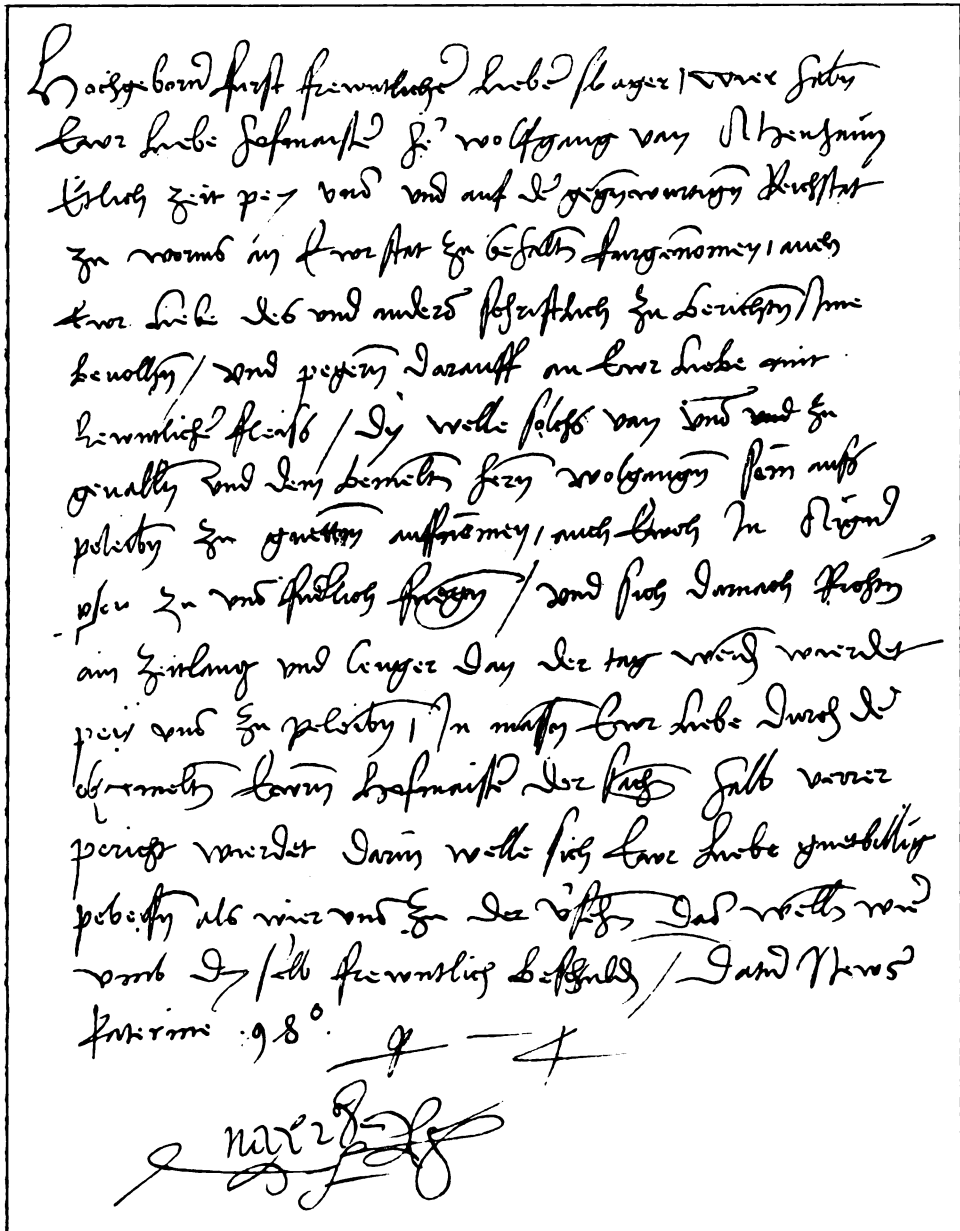 Hochgeborner furst frewntlicher Lieber swager / wier habn
Ewr Liebe hofmaister her wolfgang van
Etlich zeit pey vnns vnd auf de gegenwurtign Reichstat
zu worms an Ewr stat zu behaltn furgenomen / auch
Ewr Liebe des vnd anders schriftlich zu berichtn Ime
beuolhn / vnd pegern darauff an Ewr Liebe mit
fleiss / Dy welle solchs van vnns vnd zu
geualln vnd dem bemeltn hern wolfgangn sein aufs
peleibn zu guettem auffnemen / auch Ewch In
zu vns fuegn / vnd sich darnach Richtn
ain Zeitlang vnd lenger dan der tag werdn wierdet
pey vns zu peleibn / In massn Ewr Liebe durch de
obgemeltn Ewrn Hofmaister der sachn halb verrer
pericht wierdet darin welle sich Ewr Liebe guetwillig
peweisn als wier vns zu der versehn Das welln wier
vmb Dy selb frewntlich beschuldn / Datum
Katerine 98°.